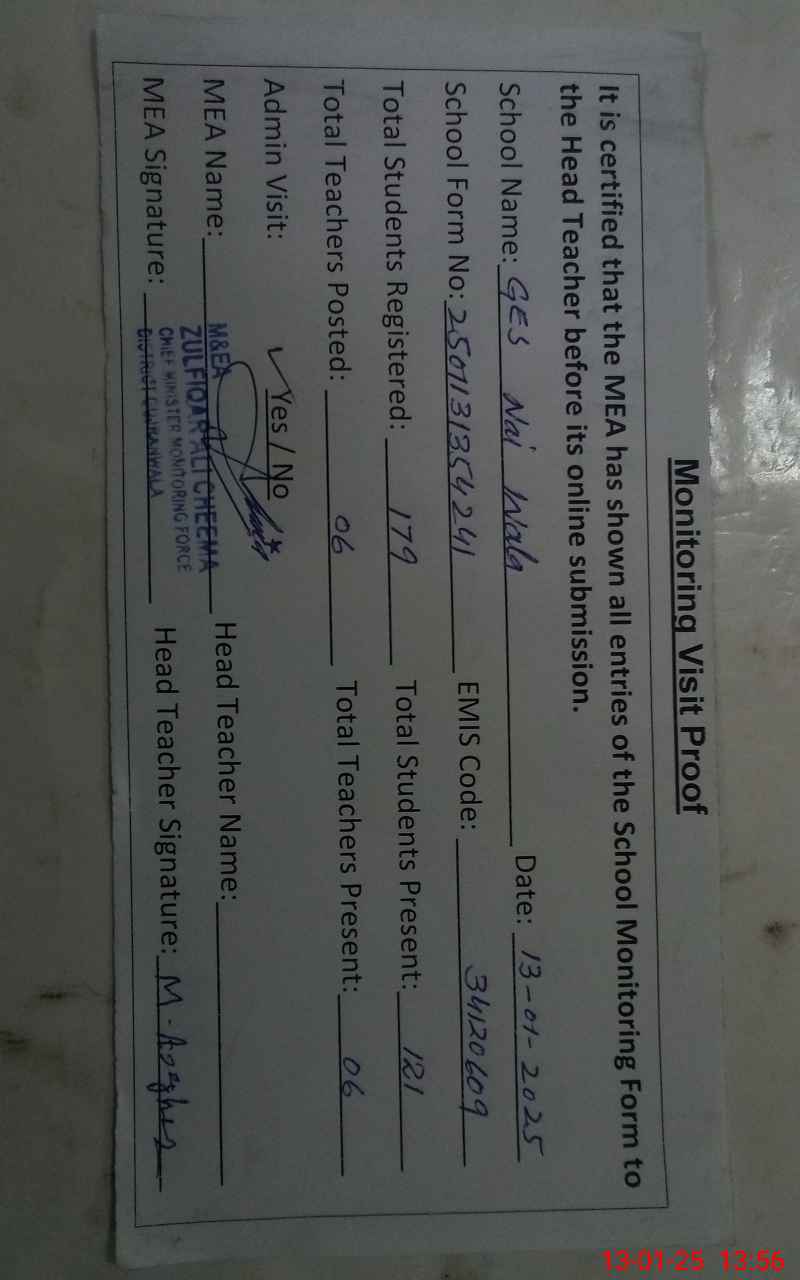 Monitoring Visit Proof
It is certified that the MEA has shown all entries of the School Monitoring Form to
the Head Teacher before its online submission.
School Name: GES Nai Wala Date: 13-01-2025
School Form No: 2501131354241 EMIS Code: 34120609
Total Students Registered: 179 Total Students Present: 121
Total Teachers Posted: 06 Total Teachers Present: 06
Admin Visit: ✓ Yes / No
MEA Name: Head Teacher Name:
M&EA
ZULFIQAR ALI CHEEMA
CHIEF MINISTER MONITORING FORCE
DISTRICT GUJRANWALA
MEA Signature: Head Teacher Signature: M.
13-01-25 13:56